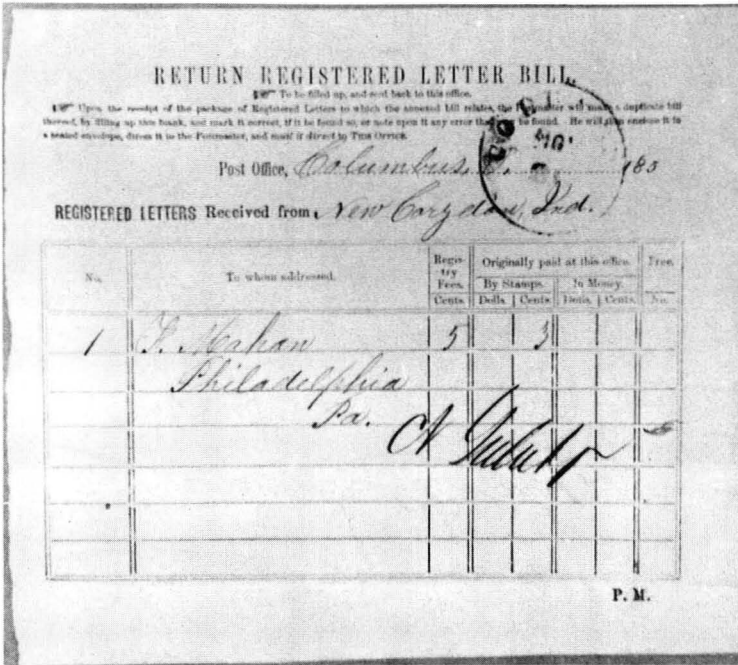 RETURN REGISTERED LETTER BILL.
To be filled up, and sent back to this office.
Upon the receipt of the package of Registered Letters to which the annexed bill relates, the Postmaster will make a duplicate bill
thereof, by filling up this blank, and mark it correct, if it be found so, or note upon it any error that may be found. He will then enclose it in
a sealed envelope, direct it to the Postmaster, and mail it direct to THIS OFFICE.
Post Office, Columbus, O. 185
REGISTERED LETTERS Received from New Corydon, Ind.
No. To whom addressed. Registry Fees. Originally paid at this office. Free.
By Stamps. In Money.
Cents. Dolls. Cents. Dolls. Cents. No.
1 F. Mahan 5 3
Philadelphia
Pa.
P. M.